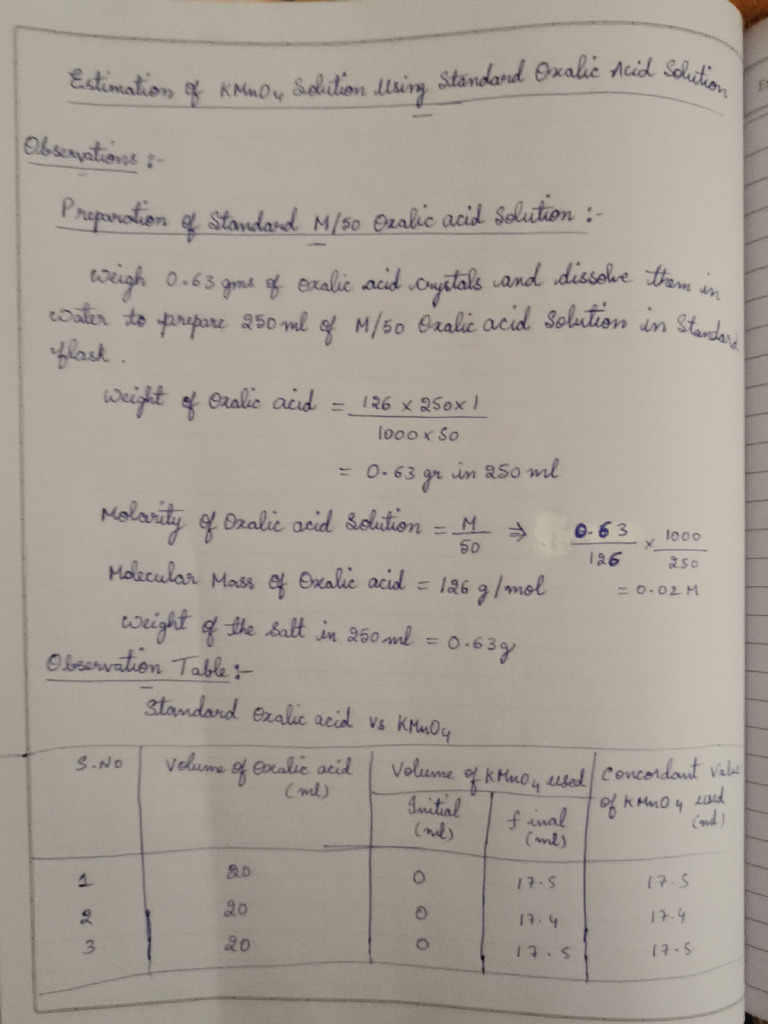 Estimation of KMnO4 Solution Using Standard Oxalic Acid Solution
Observations :-
Preparation of Standard M/50 Oxalic acid Solution :-
Weigh 0.63 gms of oxalic acid crystals and dissolve them in
water to prepare 250 ml of M/50 Oxalic acid Solution in Standard
flask.
Weight of Oxalic acid = 126 x 250 x 1
1000 x 50
= 0.63 gr in 250 ml
Molarity of Oxalic acid Solution = M/50 ⇒ 0.63/126 x 1000/250
Molecular Mass of Oxalic acid = 126 g/mol = 0.02 M
Weight of the salt in 250 ml = 0.63g
Observation Table :-
Standard Oxalic acid vs KMnO4
S.NO Volume of Oxalic acid (ml) Volume of KMnO4 used Concordant Value of KMnO4 used (ml)
Initial (ml) final (ml)
1 20 0 17.5 17.5
2 20 0 17.4 17.4
3 20 0 17.5 17.5